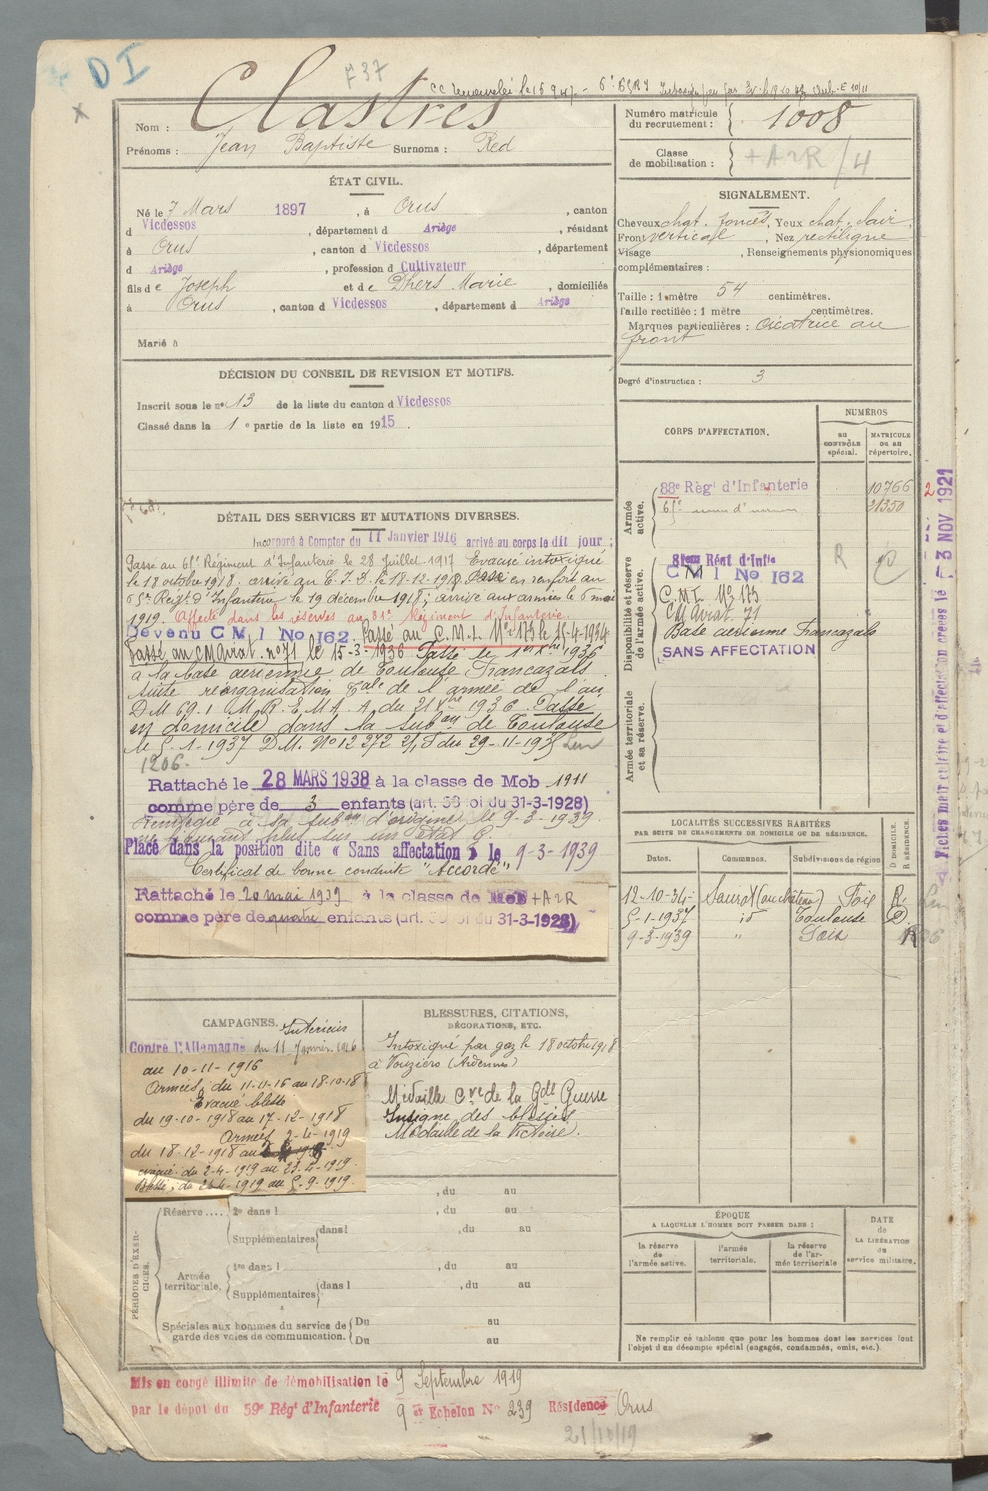 DI
F37
Clastres
Nom :
Prénoms : Jean Baptiste Surnoms : Red
Numéro matricule du recrutement : 1008
Classe de mobilisation : +A2R/4
ÉTAT CIVIL.
Né le 7 Mars 1897, à Orus, canton
d Vicdessos, département d Ariège, résidant
à Orus, canton d Vicdessos, département
d Ariège, profession d Cultivateur
fils de Joseph et de Dhers Marie, domiciliés
à Orus, canton d Vicdessos, département d Ariège
Marié à
SIGNALEMENT.
Cheveux chat. foncés, Yeux chat. clair,
Front vertical, Nez rectiligne
Visage , Renseignements physionomiques
complémentaires :
Taille : 1 mètre 54 centimètres.
Taille rectifiée : 1 mètre centimètres.
Marques particulières : cicatrice au
front
Degré d'instruction : 3
DÉCISION DU CONSEIL DE REVISION ET MOTIFS.
Inscrit sous le n° 13 de la liste du canton d Vicdessos
Classé dans la 1e partie de la liste en 1915.
CORPS D'AFFECTATION.
NUMÉROS
AU CONTRÔLE spécial.
MATRICULE OU AU répertoire.
Armée active.
88e Régt d'Infanterie 10766
Disponibilité et réserve de l'armée active.
81eme Rént d'Infie
C M I No 162
C.M.I. No 173
CM Aviat. 71
Base aérienne Francazals
SANS AFFECTATION
R
Armée territoriale et sa réserve.
DÉTAIL DES SERVICES ET MUTATIONS DIVERSES.
Incorporé à Compter du 11 Janvier 1916 arrivé au corps le dit jour ;
Passé au 6e Régiment d'Infanterie le 28 Juillet 1917 Evacué intoxiqué
le 18 octobre 1918. arrivé au C.I.D. le 18-12-1918. Passé en renfort au
Reigt d'Infanterie le 19 décembre 1918 ; arrivé aux armées le 6 mai
1919. Affecté dans les réserves au 81e Régiment d'Infanterie.
Devenu C M I No 162. Passé au C.M.I. No 173 le 15-4-1934
Passé au CM Aviat. no 71 le 15-3-1936 Passé le 1er 1936
à la base aérienne de Toulouse Francazals
suite réorganisation de l'armée de l'air
D M du 21 1936. Passé
en domicile dans la subon de Toulouse
le 5-1-1937 D.M. No 12272 du 29-11-1935
1206.
Rattaché le 28 MARS 1938 à la classe de Mob 1911
comme père de 3 enfants (art. 58 loi du 31-3-1928)
à sa subon d'origine le 9-3-1939
Placé dans la position dite « Sans affectation » le 9-3-1939
Certificat de bonne conduite "Accordé"
Rattaché le 20 mai 1939 à la classe de Mob +A2R
comme père de quatre enfants (art. 58 loi du 31-3-1928)
LOCALITÉS SUCCESSIVES HABITÉES
PAR SUITE DE CHANGEMENTS DE DOMICILE OU DE RÉSIDENCE.
D DOMICILE. R RÉSIDENCE.
Dates. Communes. Subdivisions de région
12-10-34 Saurat (au château) Foix R.
5-1-1937 id Toulouse D.
9-3-1939 " Foix R
3 NOV 1921
CAMPAGNES.
Intérieur
Contre l'Allemagne du 11 Janvier 1916
au 10-11-1916
Armées, du 11-11-16 au 18-10-18
Evacué blessé
du 19-10-1918 au 17-12-1918
Armées 2-4-1919
du 18-12-1918 au
évacué. du 2-4-1919 au 23-4-1919.
du 24-4-1919 au 5-9-1919.
BLESSURES, CITATIONS,
DÉCORATIONS, ETC.
Intoxiqué par gaz le 18 octobre 1918
à Vouziers (Ardennes)
Médaille Cve de la Gde Guerre
Insigne des blessés
Médaille de la Victoire.
PÉRIODES D'EXERCICES.
, du au
Réserve .... 2e dans l , du au
Supplémentaires dans l , du au
Armée territoriale.
1re dans l , du au
Supplémentaires dans l , du au
Spéciales aux hommes du service de garde des voies de communication.
Du au
Du au
ÉPOQUE
A LAQUELLE L'HOMME DOIT PASSER DANS :
la réserve de l'armée active.
l'armée territoriale.
la réserve de l'armée territoriale
DATE de LA LIBÉRATION du service militaire.
Ne remplir ce tableau que pour les hommes dont les services font
l'objet d'un décompte spécial (engagés, condamnés, omis, etc.).
Mis en congé illimité de démobilisation le 9 Septembre 1919
par le dépôt du 59e Régt d'Infanterie 9 Echelon No 239 Résidence Orus
21/10/19